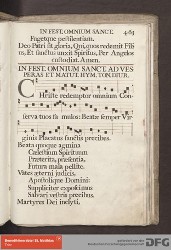 IN FEST. OMNIUM SANCT. 463
Fugetque pestilentiam.
Deo Patri sit gloria, Qui, quos redemit Fili
us, Et sanctus unxit Spiritus, Per Angelos
custodiat. Amen.
IN FEST. OMNIUM SANCT. AD VES
PERAS ET MATUT. HYM. TON. HUR.
Christe redemptor omnium Con
serva tuos fa mulos: Beatæ semper Vir
ginis Placatus sanctis precibus.
Beata quoque agmina
Cælestium Spirituum
Præterita, præsentia,
Futura mala pellite.
Vates æterni judicis,
Apostolique Domini:
Suppliciter exposcimus
Salvari vestris precibus.
Martyres Dei inclyti,
DFG